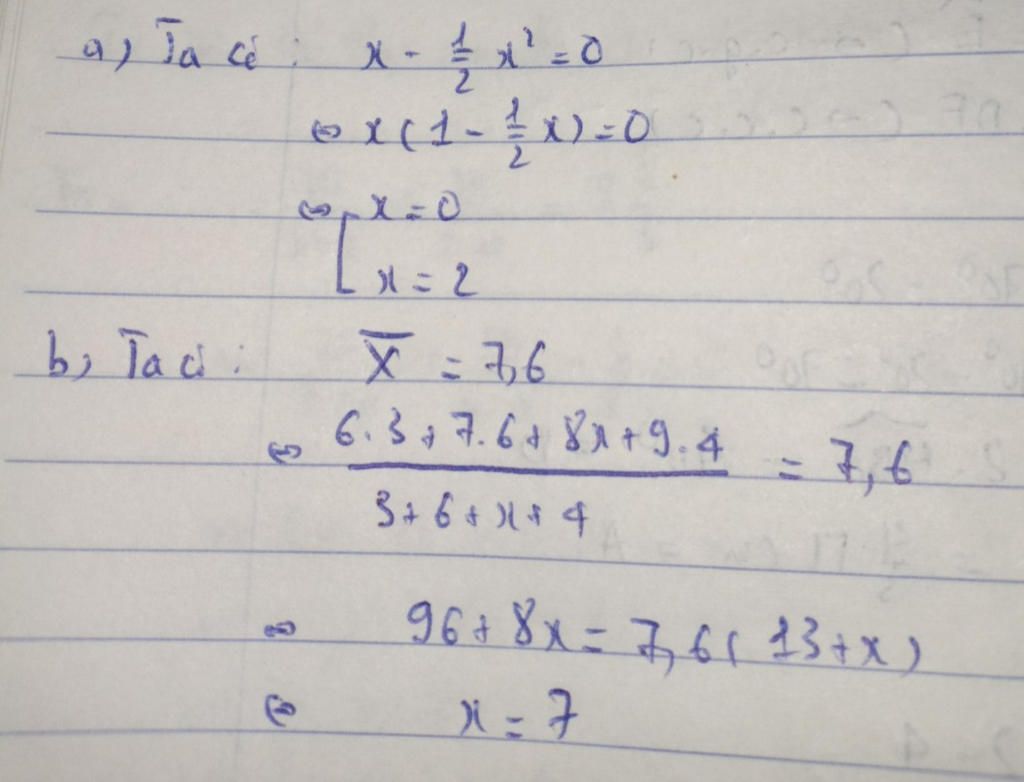 a) Ta có : x - 1/2 x² = 0
⇔ x(1 - 1/2 x) = 0
⇔ [ x = 0
x = 2
b) Ta có : X̄ = 7,6
⇔ (6.3 + 7.6 + 8x + 9.4)/(3 + 6 + x + 4) = 7,6
⇔ 96 + 8x = 7,6(13 + x)
⇔ x = 7